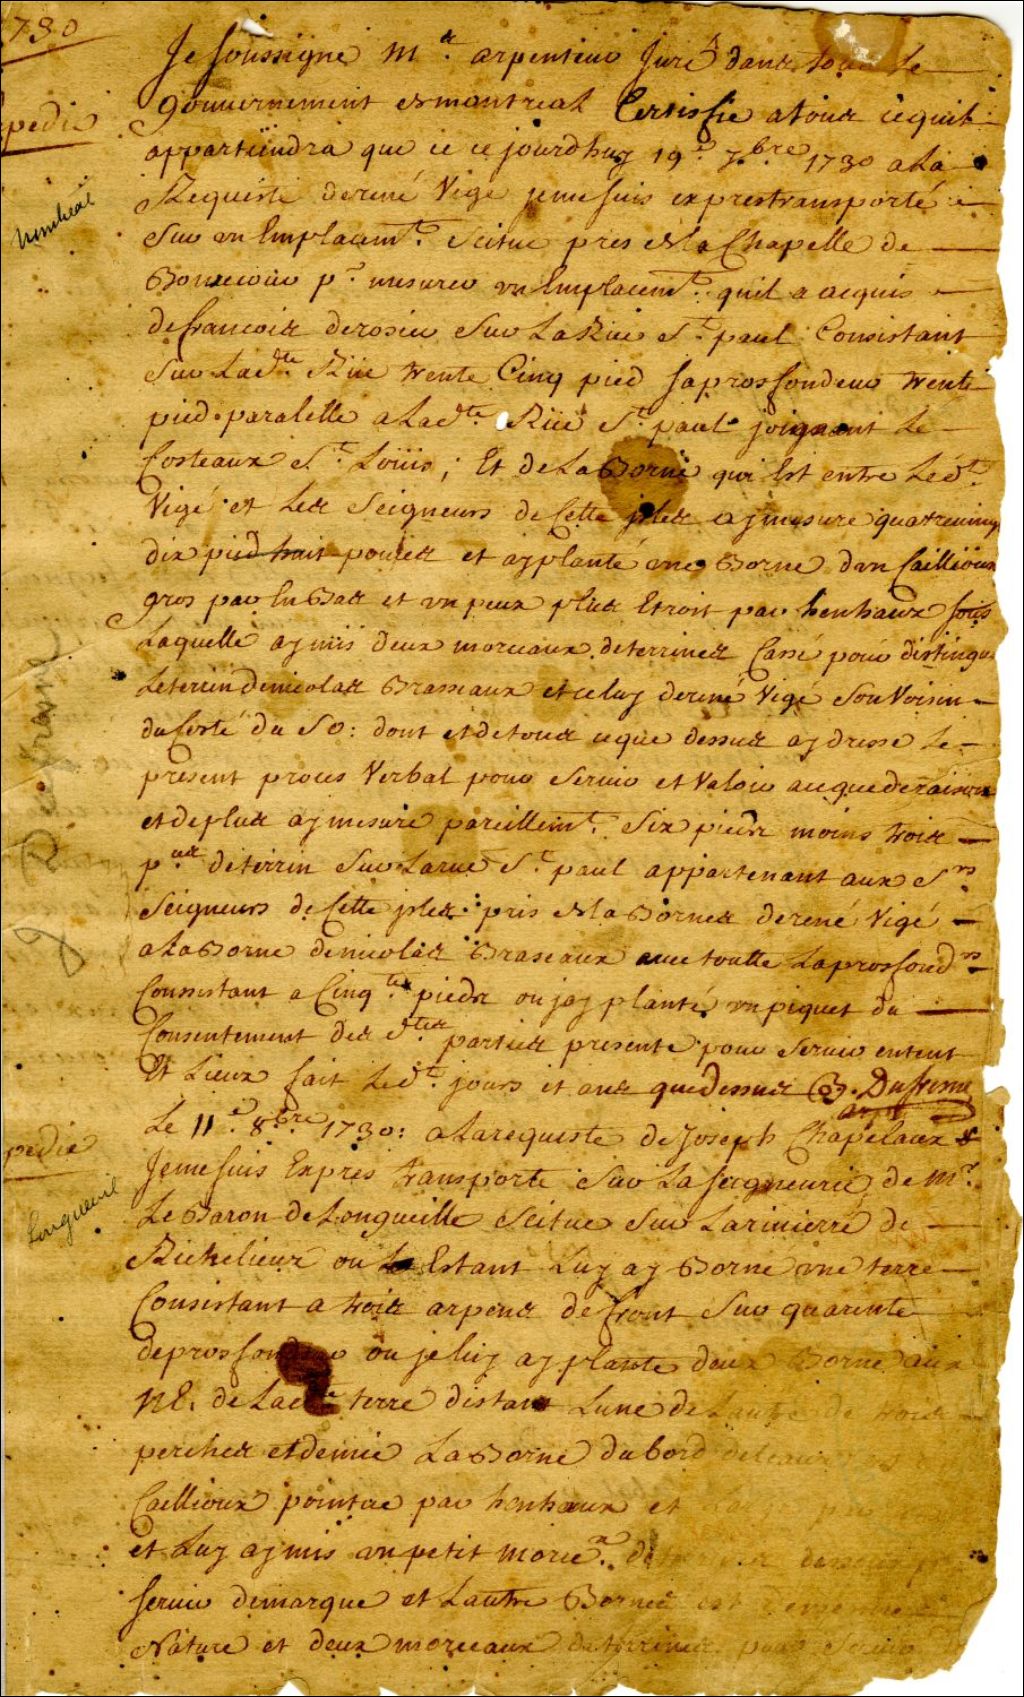 1730
Je soussigné Me. arpenteur Juré dans tout Le
gouvernement de montreal Certiffie a tous ce quil
pedié
appartiendra que ce ce jourdhuy 19e 7.bre 1730 a La
Montreal
Requeste de rené Vigé je me suis exprestransporté
Sur un Emplacemt. Scitue pres de la Chapelle de
Bonsecour pr. mesurer un Emplacemt. quil a acquis
de francois derosier Sur La Rue St. paul Consistant
Sur Ladte. Rüe trente Cinq pied Sa proffondeur trente
pied paralelle a Ladte. Rüe St. paul joignant Le
Costeaux St. Loüis; Et de La Borne qui Est entre Ledt.
Vigé et Les Seigneurs de Cette jsles ay mesuré quatreving
dix pied huit pouces et ay planté une Borne dun Caillioux
gros par En Bas et un peux plus Etroit par henhaux sous
Laquelle ay mis deux morceaux de terrines Cassé pour distingu
Le terrin de nicolas Braseaux et celuy de rené Vigé Son Voisin
du Costé du SO: dont et de tous ce que dessus ay dressé Le
present proces Verbal pour Servir et Valoir ce que de raison
et de plus ay mesuré pareillemt. Six pieds moins trois
pces de terrin Sur La rue St. paul appartenant aux Srs
Seigneurs de Cette jsles pris de la Bornes de rené Vigé
a La Borne de nicolas Braseaux avec toutte La proffondrs
Consistant a Cinqte pieds ou jay planté un piquet du
Consentement des dtes parties presente pour Servir entent
Et Lieux fait Ledt. jours et ans que dessus B. Dufresne
arpr
Dufresne
Le 11e 8bre 1730: a La requeste de Joseph Chapelaux
pedié
Je me suis Expres transporté Sur La seigneurie de Mr.
Longueuil
Le Baron de Longueille Scitue Sur La rivierre de
Richelieux ou Estant Luy ay Borné une terre
Consistant a trois arpens de front Sur quarente
de proffondeur ou je luy ay planté deux Borne aux
NE. de Ladte terre distant Lune de Lautre de trois
perches et demie La Borne du bord de leau
Caillioux pointue par henhaux et
et Luy ay mis un petit morceau dessous
Servir de marque et Lautre Borne est de meme
Nature et deux morceaux de terrines pour Servir